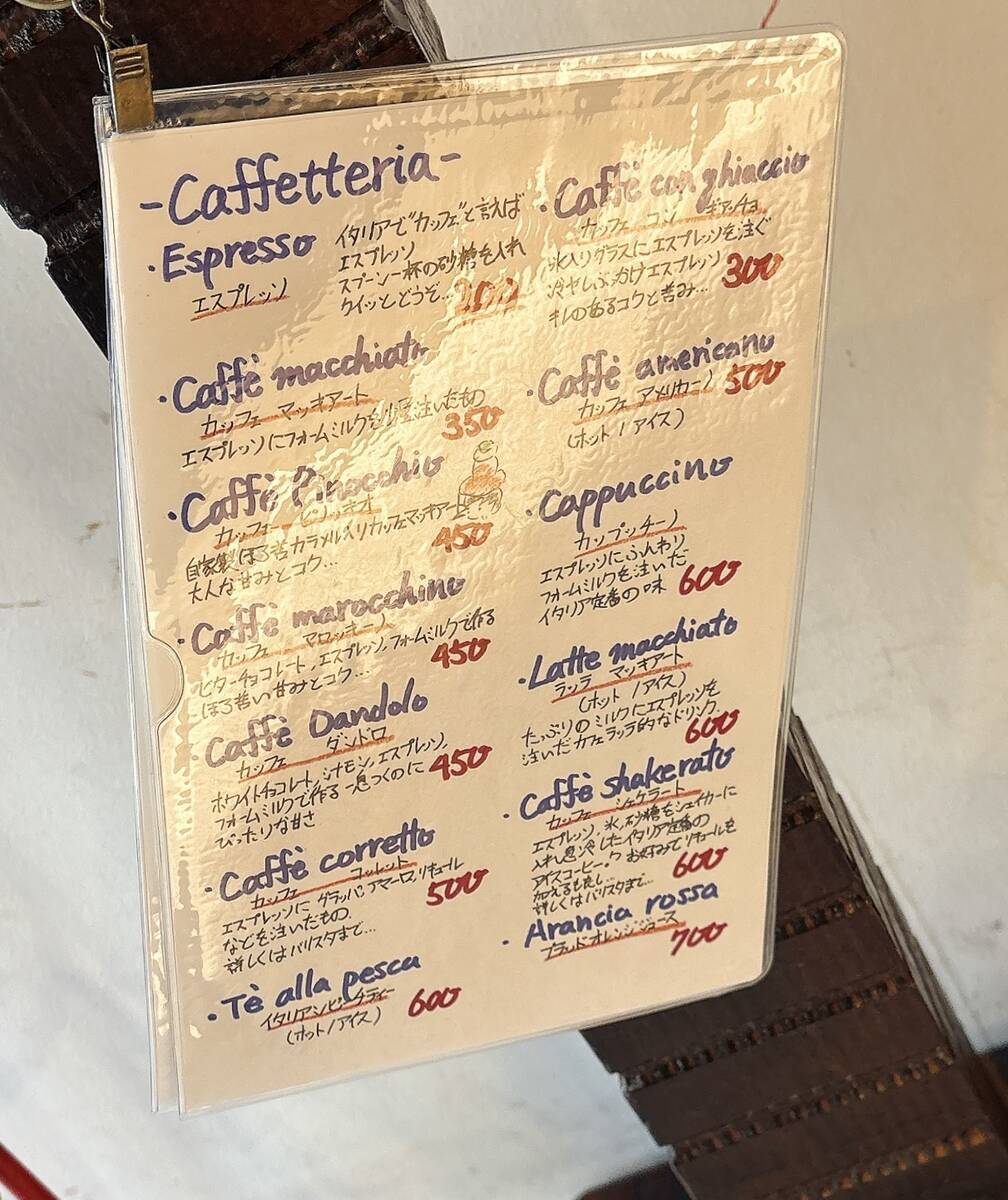 -Caffetteria-
・Espresso
エスプレッソ
イタリアで"カッフェ"と言えば
エスプレッソ
スプーン一杯の砂糖を入れ
クイッとどうぞ…
・Caffè macchiato
カッフェ マッキアート
エスプレッソにフォームミルクを少量注いだもの
350
・Caffè Pinocchio
カッフェ ピノッキオ
自家製ほろ苦カラメル入りカッフェマッキアート
大人な甘みとコク…
450
・Caffè marocchino
カッフェ マロッキーノ
ビターチョコレート、エスプレッソ、フォームミルクで作る
ほろ苦い甘みとコク…
450
・Caffè Dandolo
カッフェ ダンドロ
ホワイトチョコレート、シナモン、エスプレッソ、
フォームミルクで作る 一息つくのに
ぴったりな甘さ
450
・Caffè corretto
カッフェ コッレット
エスプレッソに グラッパ、アマーロ、リキュール
などを注いだもの。
詳しくはバリスタまで…
500
・Tè alla pesca
イタリアンピーチティー
(ホット/アイス)
600
・Caffè con ghiaccio
カッフェ コン ギアッチョ
氷入りグラスにエスプレッソを注ぐ
冷ヤしぶっかけエスプレッソ
キレのあるコクと苦み…
300
・Caffè americano
カッフェ アメリカーノ
(ホット/アイス)
500
・Cappuccino
カップッチーノ
エスプレッソにふんわり
フォームミルクを注いだ
イタリア定番の味
600
・Latte macchiato
ラッテ マッキアート
(ホット/アイス)
たっぷりのミルクにエスプレッソを
注いだカフェラッテ的なドリンク。
600
・Caffè shakerato
カッフェ シェケラート
エスプレッソ、氷、砂糖をシェイカーに
入れ急冷したイタリア定番の
アイスコーヒー。お好みでリキュールを
加えるも良し…
詳しくはバリスタまで…
600
・Arancia rossa
ブラッドオレンジジュース
700